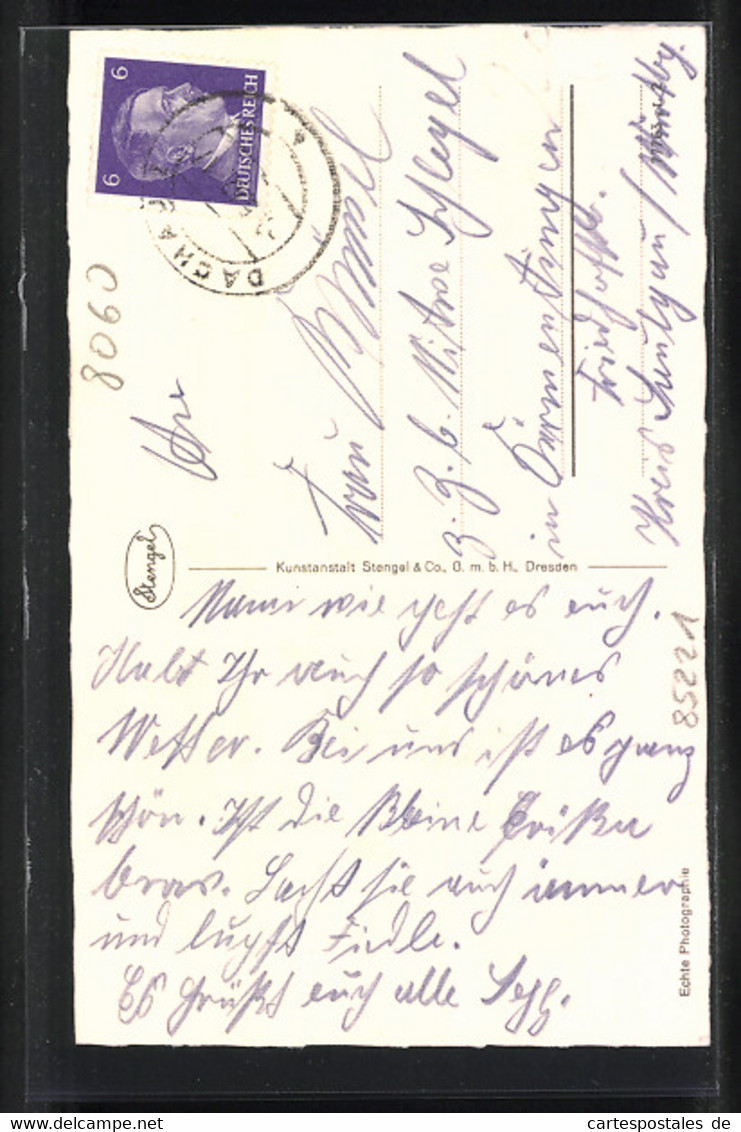 6
6
DEUTSCHES REICH
DACHAU
8060
An
Frau
z. Z. b. Witwe Schlegel
in
Friedhofstr.
Kreis
Stengel
Kunstanstalt Stengel & Co., G. m. b. H., Dresden
wie geht es euch.
Habt Ihr auch so schönes
Wetter. Bei uns ist es ganz
schön. Ist die kleine Erika
brav. Lacht sie auch immer
und lupft Füdle.
Es grüßt euch alle Sepp.
85221
Echte Photographie
cartespostales de